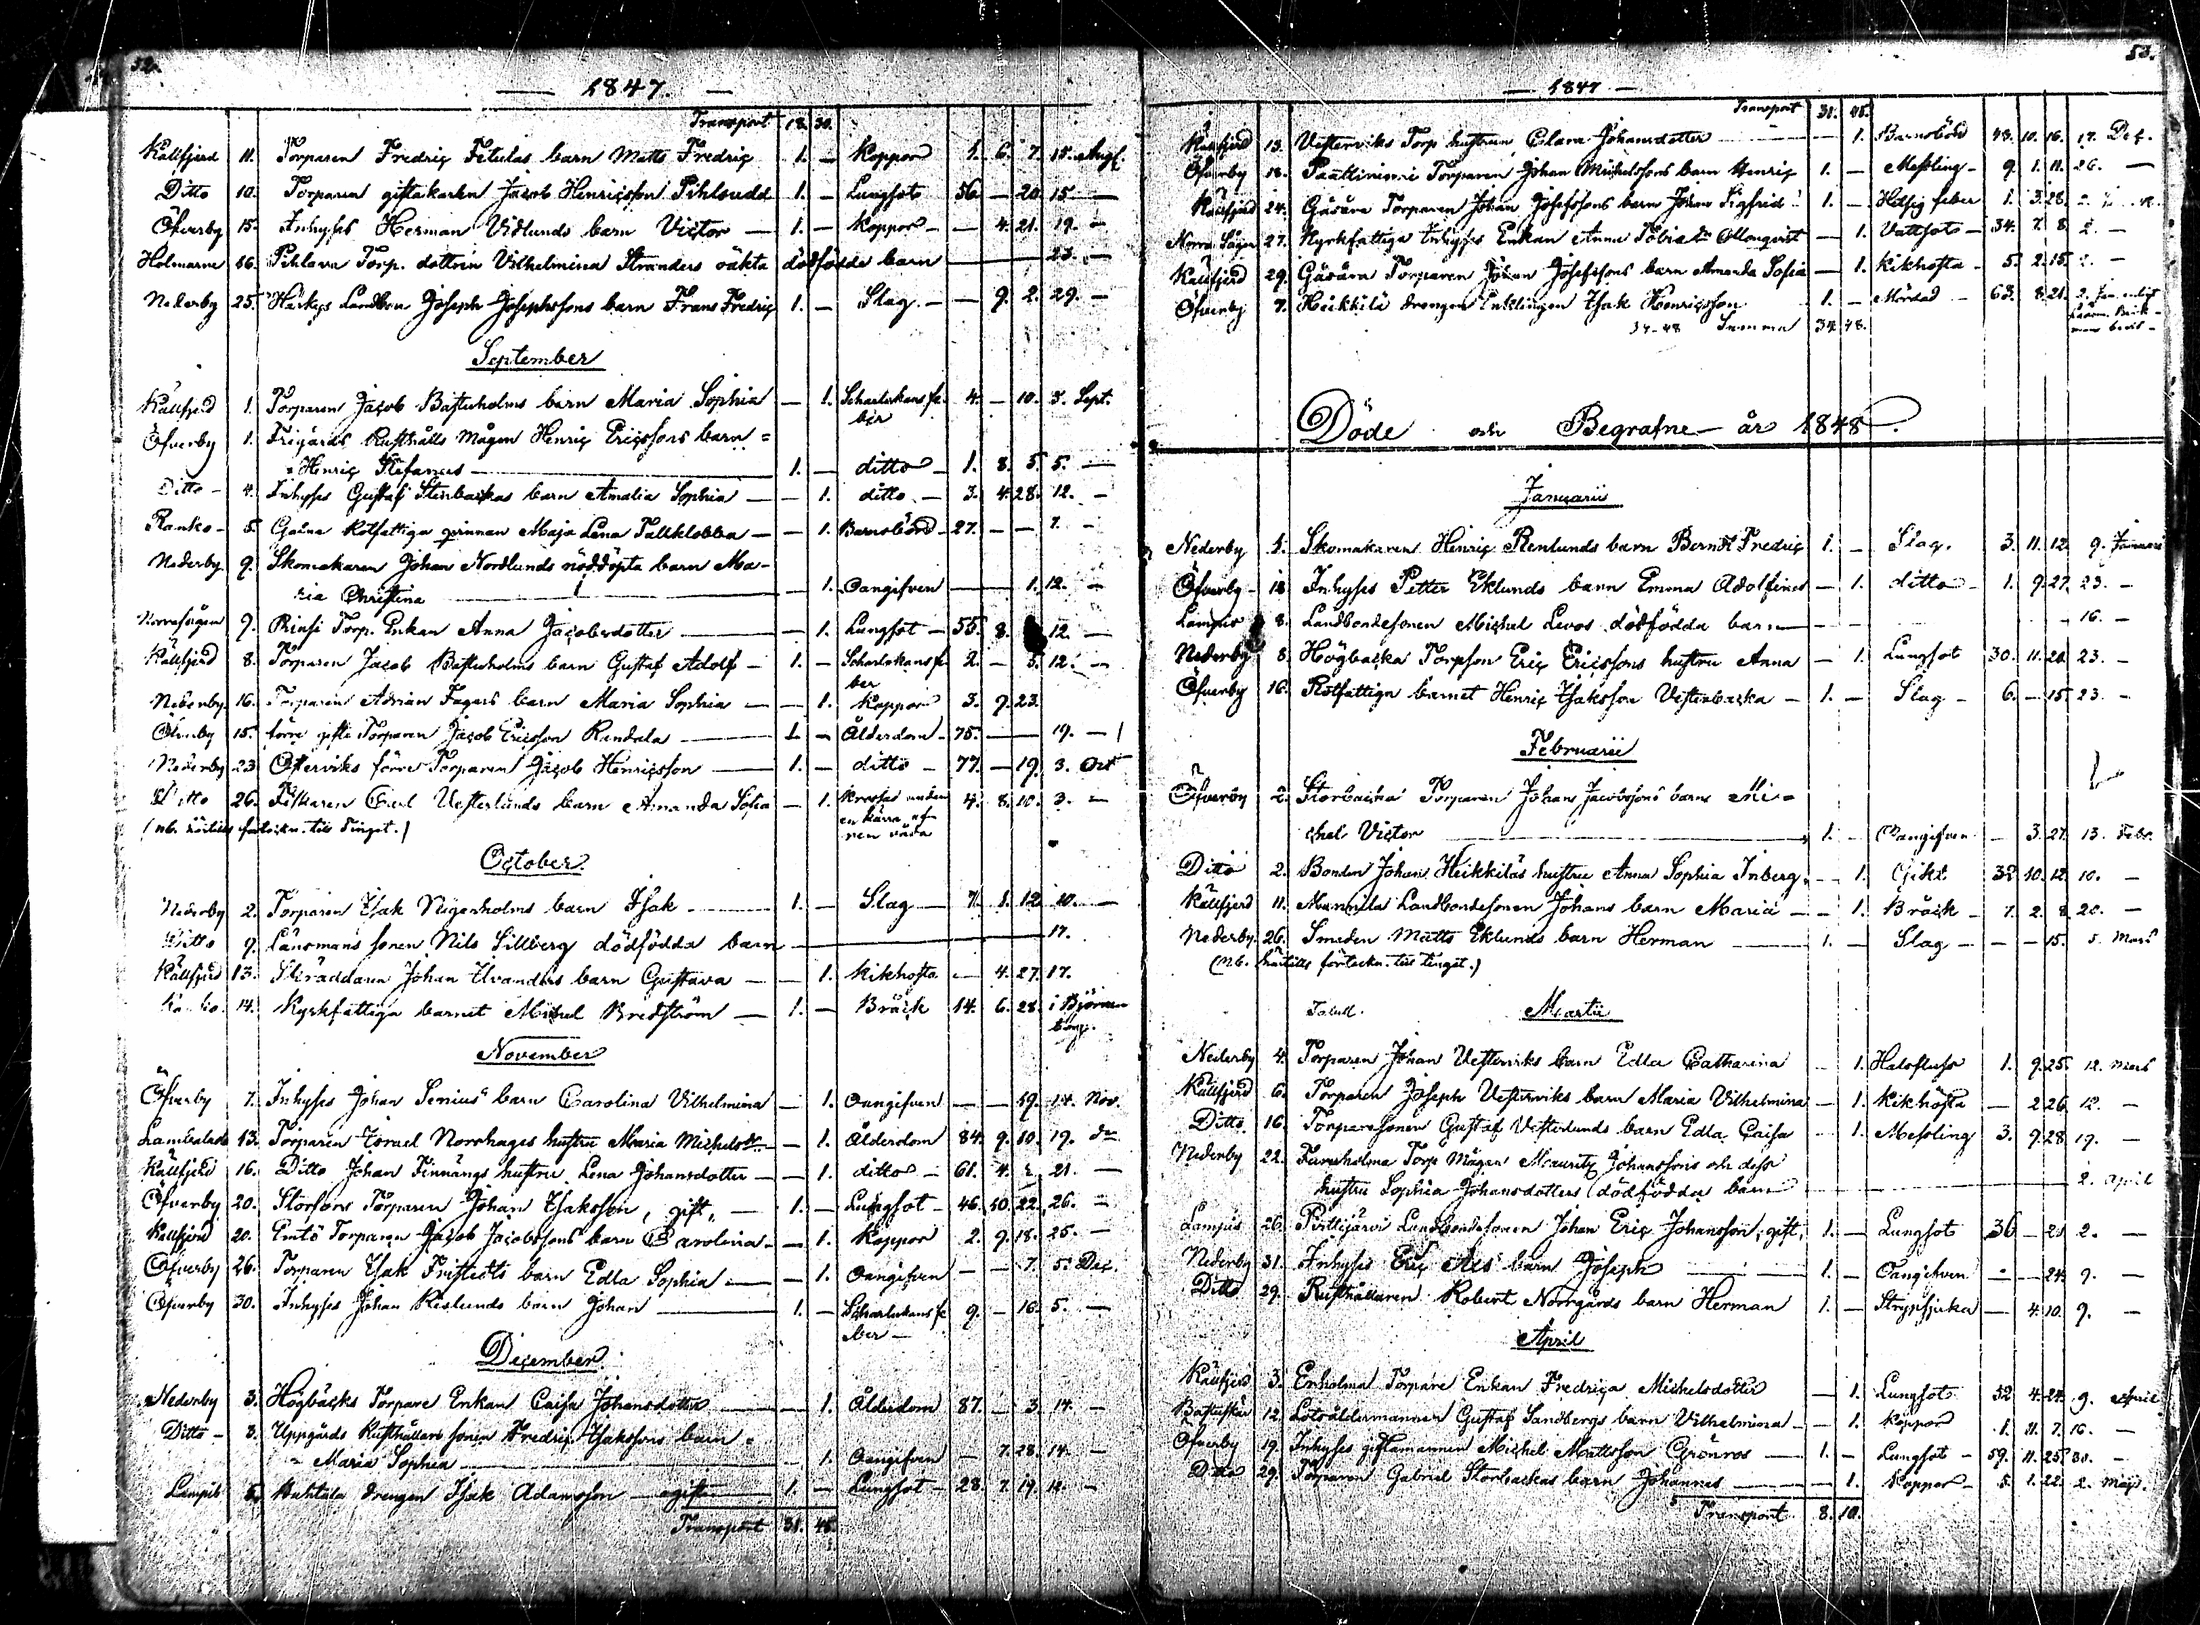 52.
— 1847. —
Transport 18. 30.
Källfjerd 11. Torparen Fredriç Fetulas barn Matts Fredriç 1. — Koppor 1. 6. 7. 15. Aug.
Ditto 10. Torparen giftakarlen Jacob Henriçsson Pihlsudd 1. — Lungsot 56 — 20. 15. —
Öfverby 15. Inhyses Herman Vidlunds barn Victor — 1. — Koppor — — 4. 21. 19. —
Holmarne 16. Pihlava Torp. dottren Vilhelmina Stranders oäkta dödfödde barn — 23. —
Nederby 25. Landbon Joseph Josephssons barn Frans Fredriç 1. — Slag. — — 9. 2. 29. —
September
Källfjerd 1. Torparen Jacob Bastuholms barn Maria Sophia — 1. Scharlakansfe- 4. — 10. 5. Sept.
ber
Öfverby 1. Frigårds Rusthålls Mågen Henriç Ericssons barn =
= Henriç Stefanus — 1. — ditto — 1. 8. 5. 5. —
Ditto — 4. Inhyses Gustaf Stenbackas barn Amalia Sophia — — 1. ditto — 3. 4. 28. 12. —
Ranko — 5. Rotfattiga qvinnan Maja Lena Tallklobba — — 1. Barnsbörd — 27. — — 7. —
Nederby 9. Skomakaren Johan Nordlunds nöddöpta barn Ma-
ria Christina — 1. Oangifven — — 1. 12. —
Norrasägen 9. Torp. Enkan Anna Jacobsdotter — 1. Lungsot — 55. 8. 12. —
Källfjerd 8. Torparen Jacob Bastuholms barn Gustaf Adolf — 1. — Scharlakansfe 2. — 5. 12. —
ber
Nederby 16. Torparen Adrian Fagers barn Maria Sophia — — 1. Koppor 3. 9. 23.
Öfverby 15. förre gifte Torparen Jacob Ericsson Rendala — 1 — Ålderdom — 75. — — 19. —
Nederby 23. Österviks förre Torparen Jacob Henriçsson — 1. — ditto — 77. — 19. 3. Oct
Ditto 26. Carl Vesterlunds barn Amanda Sofia — 1. Krossad under 4. 8. 10. 3. —
en kärra af
ren våda
(nb. förteckn. till Tinget.)
October.
Nederby 2. Torparen Isak Nigerholms barn Isak — 1. — Slag — 7. 1. 12. 10. —
Ditto 9. Länsmans sonen Nils Sillberg dödfödda barn — 17.
Källfjerd 13. Skräddaren Johan Uvanders barn Gustava — — 1. Kikhosta — 4. 27. 17.
14. Kyrkfattiga barnet Michel Bredström — 1. — Bräck 14. 6. 28. i Björne
borg.
November
Öfverby 7. Inhyses Johan Senius' barn Carolina Vilhelmina — 1. Oangifven — — 19. 14. Nov.
Lambalads 13. Torparen Israel Norrhages hustru Maria Michelsdr — 1. Ålderdom 84. 9. 10. 19. do
Källfjerd 16. Ditto Johan Finnängs hustru Lena Johansdotter — — 1. ditto — 61. 4. 21. —
Öfverby 20. Storsors Torparen Johan Isaksson, gift, — 1. — Lungsot — 46. 10. 22. 26. —
Källfjerd 20. Torparen Jacob Jacobssons barn Carolina — — 1. Koppor 2. 9. 18. 26. —
Öfverby 26. Torparen Isak Fristedts barn Edla Sophia — — 1. Oangifven — — 7. 5. Dec.
Öfverby 30. Inhyses Johan Rislunds barn Johan — 1. — Scharlakansfe 9. — 16. 5. —
ber —
December.
Nederby 3. Högbäcks Torpare Enkan Caisa Johansdotter — 1. Ålderdom 87. — 3. 14. —
Ditto — 3. Uppgårds Rusthållare sonen Fredriç Isakssons barn =
= Maria Sophia — 1. Oangifven — 7. 28. 14. —
Lampis 5. Huhtala drengen Isak Adamsson — ogift — 1. — Lungsot — 28. 7. 19. 12. —
Transport 31. 45.
53.
— 1847 —
Transport 31. 45.
Källfjerd 13. Vesterviks Torp hustrun Clara Johansdotter — 1. Barnsbörd 43. 10. 16. 17. Dec.
Öfverby 18. Torparen Johan Michelssons barn Henriç 1. — Messling — 9. 1. 11. 26. —
Källfjerd 24. Gåsöra Torparen Johan Josefssons barn Johan Sigfrid 1. — Hetsig feber 1. 3. 28. 2.
Norra Sägen 27. Kyrkfattiga Inhyses Enkan Anna Tobiasdr Ollonqvist — 1. Vattsot — 34. 7. 8. 2. —
Källfjerd 29. Gåsöra Torparen Johan Josefssons barn Amanda Sofia — 1. Kikhosta — 5. 2. 15. 2. —
Öfverby 7. Heikkilä drengen Enklingen Isak Henriçsson 1. — Mördad — 63. 8. 21. 2. Jan. enligt
34-48 Summa 34. 48.
Döde och Begrafne — år 1848.
Januarii
Nederby 1. Skomakaren Henriç Renlunds barn Berndt Fredriç 1. — Slag. 3. 11. 12. 9. Januarii
Öfverby — 18. Inhyses Petter Eklunds barn Emma Adolfina — 1. ditto — 1. 9. 27. 23. —
Lampis 8. Landbondesonen Michel Levos dödfödda barn — 16. —
Nederby 8. Högbacka Torpson Eric Ericssons hustru Anna — 1. Lungsot 30. 11. 21. 23. —
Öfverby 16. Rotfattiga barnet Henriç Isaksson Vesterbacka — 1. — Slag — 6. — 15. 23. —
Februarii
Öfverby 2. Storbacka Torparen Johans Jacobssons barn Mi =
chel Victor — 1. — Oangifven — 3. 27. 13. Febr.
Ditto 2. Bonden Johan Heikkiläs hustru Anna Sophia Inberg. — 1. Gikt 32. 10. 12. 10. —
Källfjerd 11. Mannila Landbondesonen Johans barn Maria — — 1. Bräck — 7. 2. 8. 20. —
Nederby 26. Smeden Matts Eklunds barn Herman — 1. — Slag — — — 15. 5. Mars
(Nb. förteckn. till tinget.)
Martii
Nederby 4. Torparen Johan Vesterviks barn Edla Catharina — 1. Halsfluss 1. 9. 25. 12. Mars
Källfjerd 6. Torparen Joseph Vesterviks barn Maria Vilhelmina — 1. Kikhosta — 2. 26. 12. —
Ditto 16. Torparesonen Gustaf Vesterlunds barn Edla Caisa — 1. Messling 3. 9. 28. 19. —
Nederby 22. Furuholma Torp Mågen Mauritz Johanssons och dess
hustru Sophia Johansdotters dödfödda barn — 2. April
Lampis 26. Perttijärvi Landbondesonen Johan Eriç Johansson, gift, 1. — Lungsot 36 — 21 2. —
Nederby 31. Inhyses Eriç barn Joseph — 1. — Oangifven — — 24. 9. —
Ditto 29. Rusthållaren Robert Norrgårds barn Herman 1. — Strypsjuka — 4. 10. 9. —
April
Källfjerd 3. Enholma Torpare Enkan Fredrica Michelsdotter — 1. Lungsot 32. 4. 24. 9. April.
Bastuskär 12. Lotsåldermannen Gustaf Sandbergs barn Vilhelmina — — 1. Koppor 1. 11. 7. 16. —
Öfverby 19. Inhyses giftamannen Michel Mattsson Grönros — 1. — Lungsot — 59. 11. 25. 30. —
Ditto 29. Torparen Gabriel Storbackas barn Johannes — 1. Koppor — 5. 1. 22. 2. Maji.
Transport 8. 10.